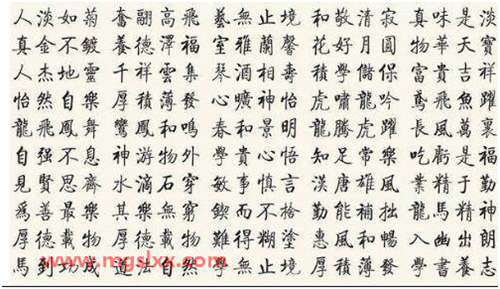 人淡如菊 奮翮高飛 藝無止境 和敬清寂 真味是淡
真金不鍍 養德澤福 室雅蘭馨 花好月圓 物華天寶
人杰地靈 千祥雲集 琴酒相壽 學儲保 富貴吉祥
怡然自樂 厚積薄發 心曠神怡 虎嘯龍吟 鳶飛魚躍
龍飛鳳舞 鸞鳳和鳴 春和景明 龍騰虎躍 長風萬裏
自强不息 神游物外 學貴心悟 知足常樂 吃虧是福
見賢思齊 水滴石穿 敏事慎言 漢唐雄風 業精于勤
爲善最樂 其樂無窮 而不 勤能補拙 龍馬精神
厚德載物 厚德載物 難得糊塗 惠風和暢 入幽出朗
馬到功成 道法自然 學無止境 厚積薄發 學書養志
www.mgslxx.com